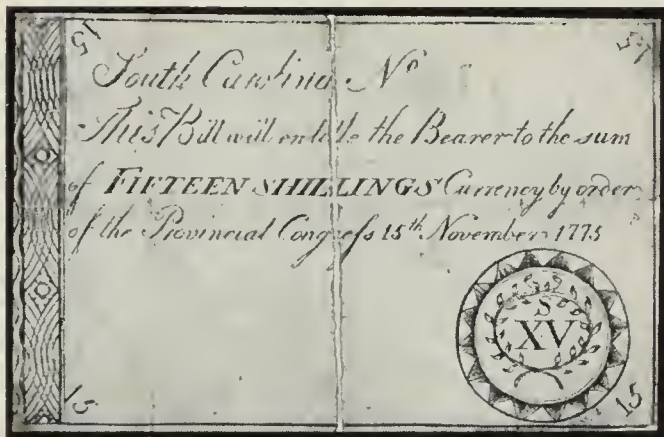 15
15
South Carolina N.º
This Bill will entitle the Bearer to the sum
of FIFTEEN SHILLINGS Currency by order
of the Provincial Congreſs 15th November 1775
S
XV
15
15